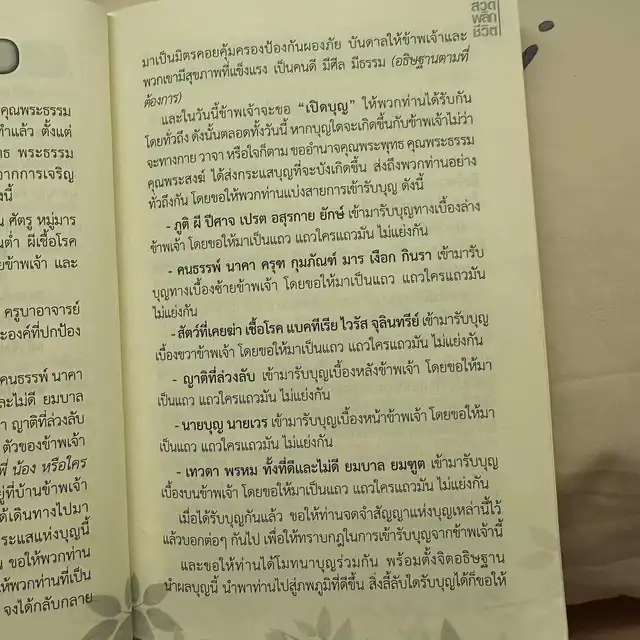 คุณพระธรรม
ทำแล้ว ตั้งแต่
ทธ พระธรรม
จากการเจริญ
งนี้
น ศัตรู หมู่มาร
นต่ำ ผีเชื้อโรค
ยข้าพเจ้า และ
ครูบาอาจารย์
ะองค์ที่ปกป้อง
คนธรรพ์ นาคา
ละไม่ดี ยมบาล
า ญาติที่ล่วงลับ
ตัวของข้าพเจ้า
พี่ น้อง หรือใคร
ยู่ที่บ้านข้าพเจ้า
ได้เดินทางไปมา
ระแสแห่งบุญนี้
น ขอให้พวกท่าน
ห้พวกท่านที่เป็น
จงได้กลับกลาย
สวด
พลิก
ชีวิต
มาเป็นมิตรคอยคุ้มครองป้องกันผองภัย บันดาลให้ข้าพเจ้าและ
พวกเขามีสุขภาพที่แข็งแรง เป็นคนดี มีศีล มีธรรม (อธิษฐานตามที่
ต้องการ)
และในวันนี้ข้าพเจ้าจะขอ “เปิดบุญ” ให้พวกท่านได้รับกัน
โดยทั่วถึง ดังนั้นตลอดทั้งวันนี้ หากบุญใดจะเกิดขึ้นกับข้าพเจ้าไม่ว่า
จะทางกาย วาจา หรือใจก็ตาม ขออำนาจคุณพระพุทธ คุณพระธรรม
คุณพระสงฆ์ ได้ส่งกระแสบุญที่จะบังเกิดขึ้น ส่งถึงพวกท่านอย่าง
ทั่วถึงกัน โดยขอให้พวกท่านแบ่งสายการเข้ารับบุญ ดังนี้
- ภูติ ผี ปีศาจ เปรต อสุรกาย ยักษ์ เข้ามารับบุญทางเบื้องล่าง
ข้าพเจ้า โดยขอให้มาเป็นแถว แถวใครแถวมัน ไม่แย่งกัน
- คนธรรพ์ นาคา ครุฑ กุมภัณฑ์ มาร เงือก กินรา เข้ามารับ
บุญทางเบื้องซ้ายข้าพเจ้า โดยขอให้มาเป็นแถว แถวใครแถวมัน
ไม่แย่งกัน
- สัตว์ที่เคยฆ่า เชื้อโรค แบคทีเรีย ไวรัส จุลินทรีย์ เข้ามารับบุญ
เบื้องขวาข้าพเจ้า โดยขอให้มาเป็นแถว แถวใครแถวมัน ไม่แย่งกัน
- ญาติที่ล่วงลับ เข้ามารับบุญเบื้องหลังข้าพเจ้า โดยขอให้มา
เป็นแถว แถวใครแถวมัน ไม่แย่งกัน
- นายบุญ นายเวร เข้ามารับบุญเบื้องหน้าข้าพเจ้า โดยขอให้มา
เป็นแถว แถวใครแถวมัน ไม่แย่งกัน
- เทวดา พรหม ทั้งที่ดีและไม่ดี ยมบาล ยมฑูต เข้ามารับบุญ
เบื้องบนข้าพเจ้า โดยขอให้มาเป็นแถว แถวใครแถวมัน ไม่แย่งกัน
เมื่อได้รับบุญกันแล้ว ขอให้ท่านจดจำสัญญาแห่งบุญเหล่านี้ไว้
แล้วบอกต่อๆ กันไป เพื่อให้ทราบกฎในการเข้ารับบุญจากข้าพเจ้านี้
และขอให้ท่านได้โมทนาบุญร่วมกัน พร้อมตั้งจิตอธิษฐาน
นำผลบุญนี้ นำพาท่านไปสู่ภพภูมิที่ดีขึ้น สิ่งลี้ลับใดรับบุญได้ก็ขอให้